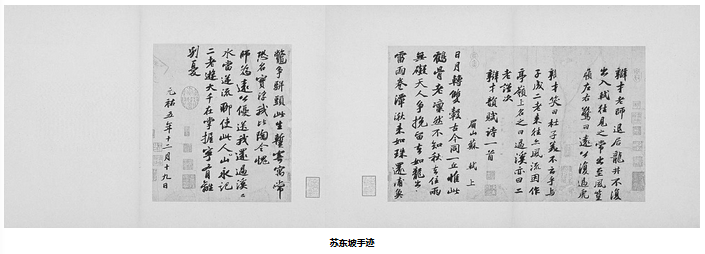 辯才老師退居龍井不復
出入軾往見之常出至風篁
嶺左右驚曰遠公復過虎
辯才笑曰杜子美不云乎與
子成二老來往亦風流因作
亭嶺上名之曰過溪亦曰二
老謹次
辯才韻賦詩一首
眉山蘇軾上
日月轉雙轂古今同一丘惟此
鶴骨老凜然不知秋去住兩
無礙天人爭挽留去如龍出
雷雨卷潭湫來如珠還浦魚
鱉爭駢頭此生暫寄寓常
恐名實浮我比陶令愧
師為遠公優送我還過溪溪
水當逆流聊使此人山永記
二老遊大千在掌握寧有離
別憂
元祐五年十二月十九日
苏东坡手迹